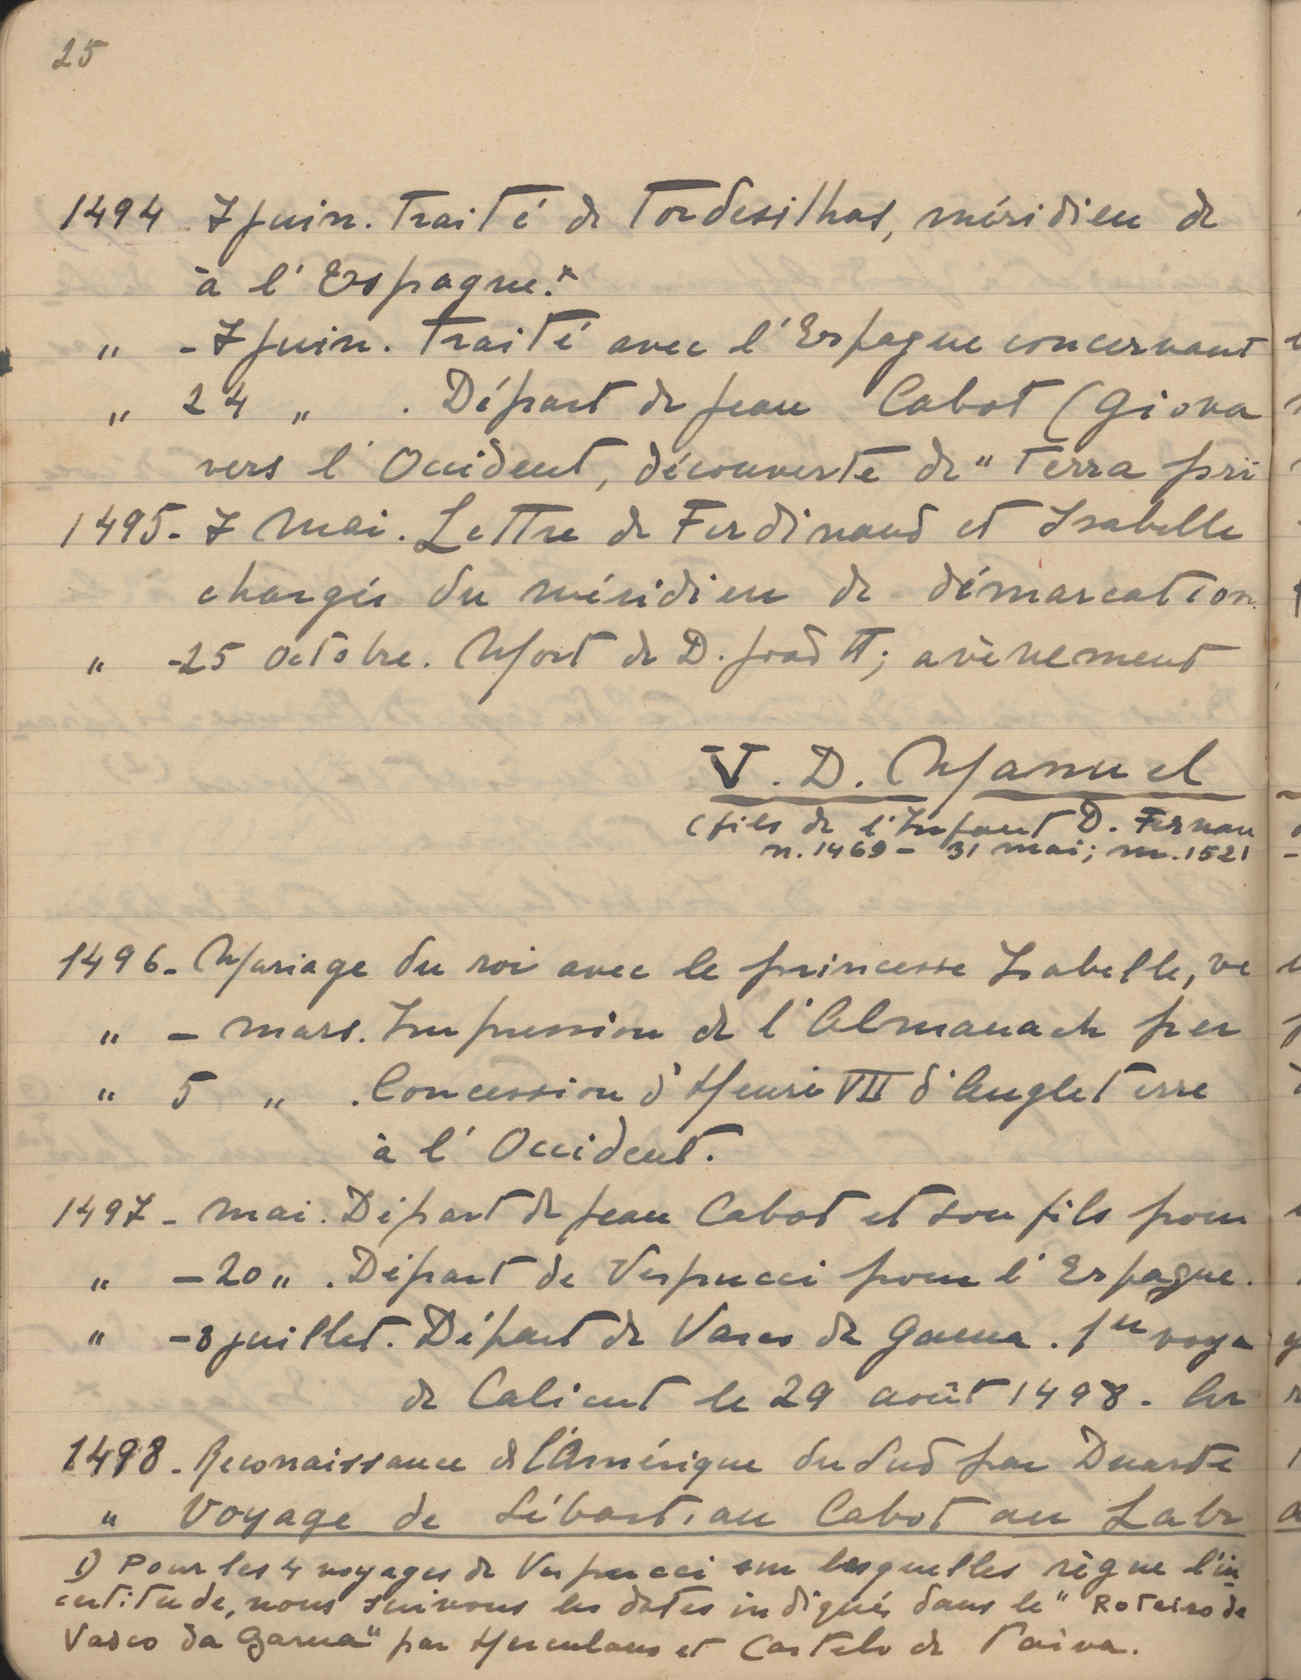 25
1494 7 Juin. Traité de Tordesilhas, méridien de
à l'Espagne.
" - 7 Juin. Traité avec l'Espagne concernant
" 24 " . Départ de Jean Cabot (Giova
vers l'Occident, découverte de "Terra pri
1495 - 7 Mai. Lettre de Ferdinand et Isabelle
chargés du méridien de démarcation
" - 25 octobre. Mort de D. João II; avènement
V. D. Manuel
(fils de l'Infant D. Fernan
n. 1469 - 31 mai; m. 1521
1496 - Mariage du roi avec le princesse Isabelle, ve
" - mars. Impression de l'Almanach per
" 5 " . Concession d'Henri VII d'Angleterre
à l'Occident.
1497 - mai. Départ de Jean Cabot et son fils pour
" - 20 " . Départ de Vespucci pour l'Espagne.
" - 8 juillet. Départ de Vasco de Gama. 1er voya
de Calicut le 29 août 1498. Ar
1498 - Reconnaissance de l'Amérique du Sud par Duarte
" Voyage de Sébastian Cabot au Labr
1) Pour les 4 voyages de Vespucci sur lesquelles règne l'in
certitude, nous suivons les dates indiqués dans le "Roteiro de
Vasco da Gama" par Herculano et Castelo de Paiva.